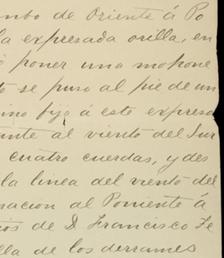 mbo de Oriente á Po
la expresada orilla, en
poner una mojone
se puso al pie de un
ino fijo á este expresa
ante al viento del Sur
cuatro cuerdas, y des
la linea del viento del
sacion al Poniente á
ios de D. Francisco Fe
lla de los derrames